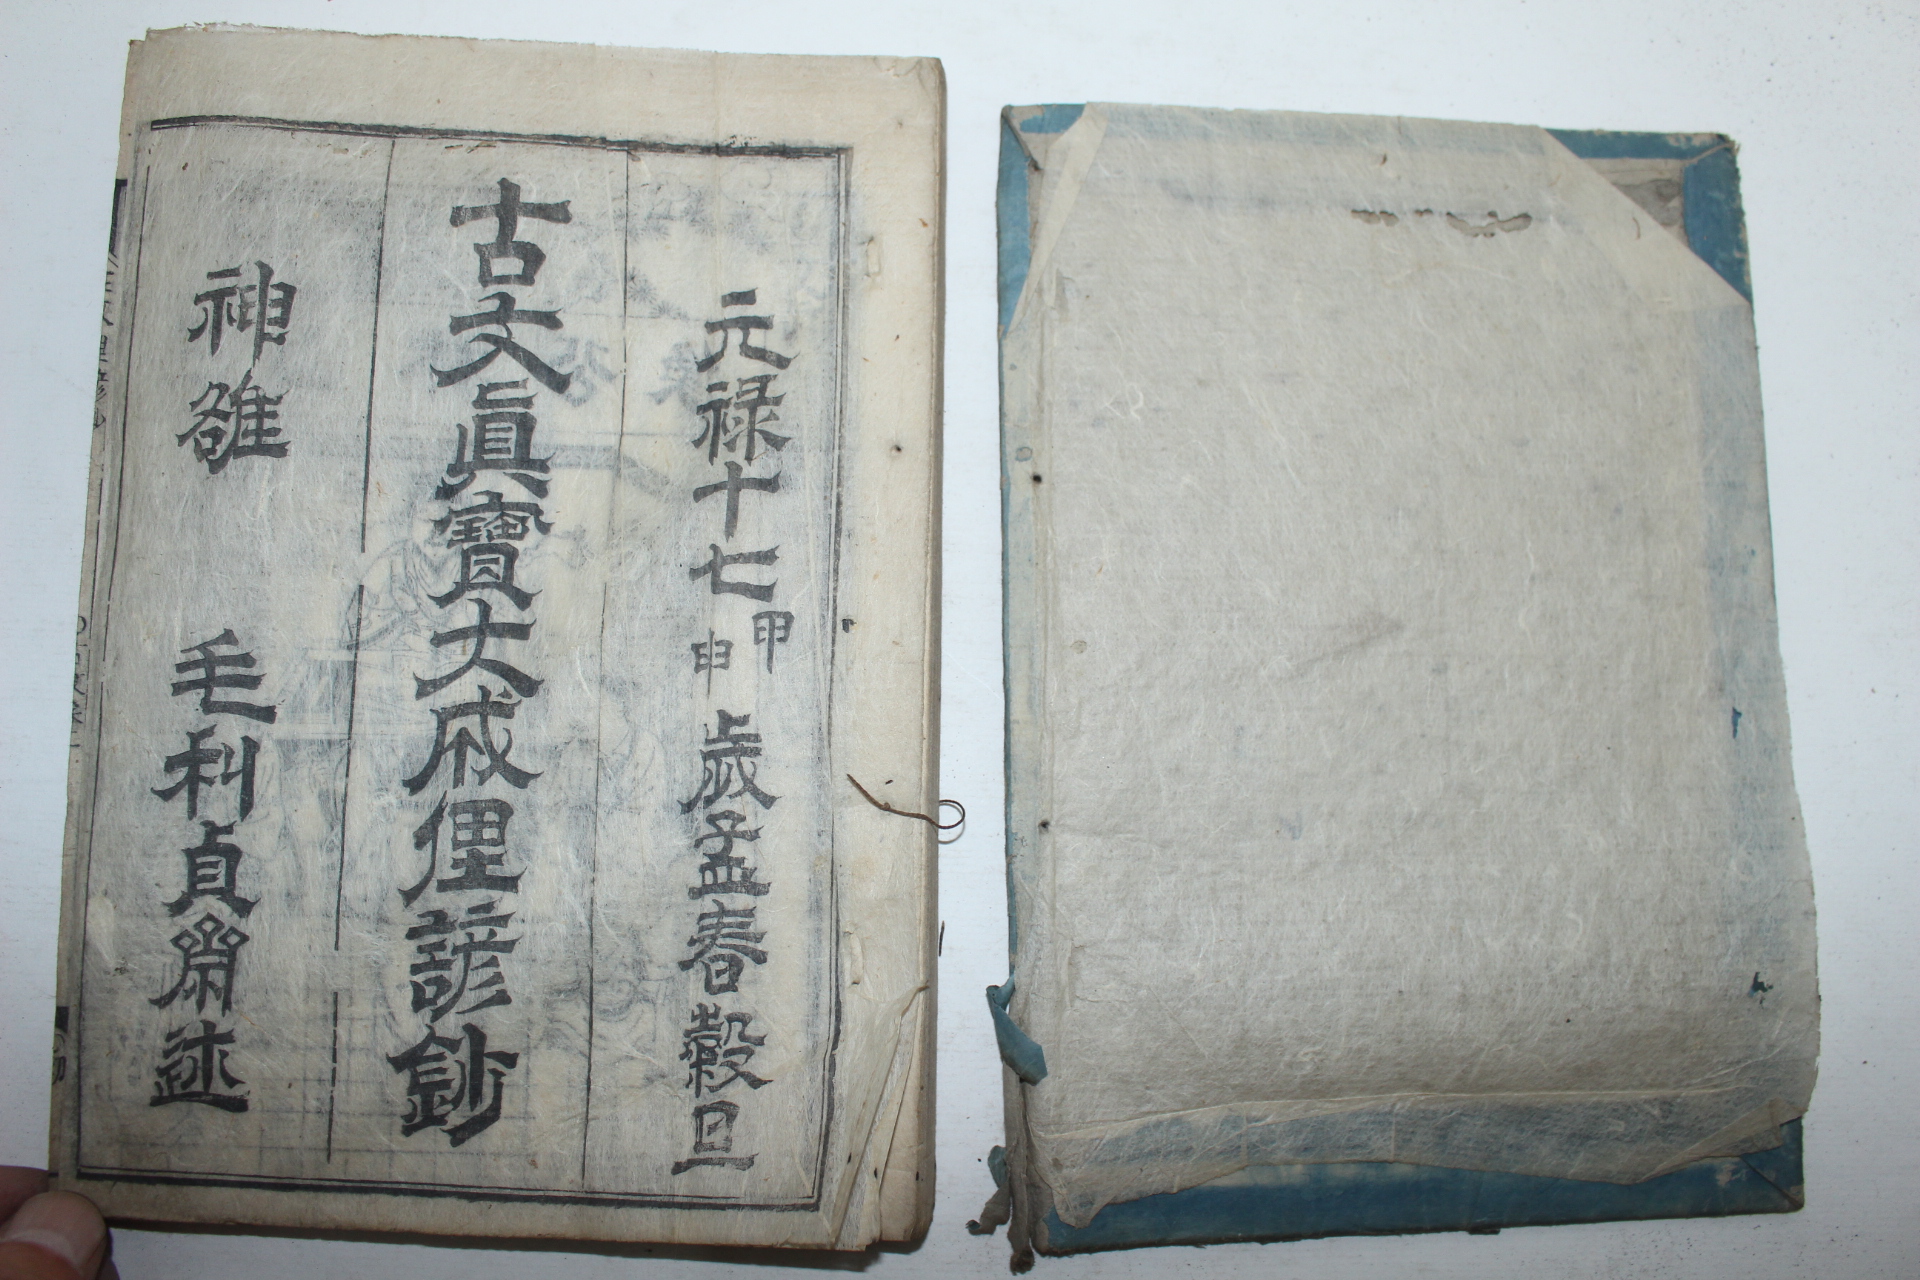 元禄十七甲申歲孟春穀旦
古文眞寶大成俚諺鈔
神雒 毛利貞齋述